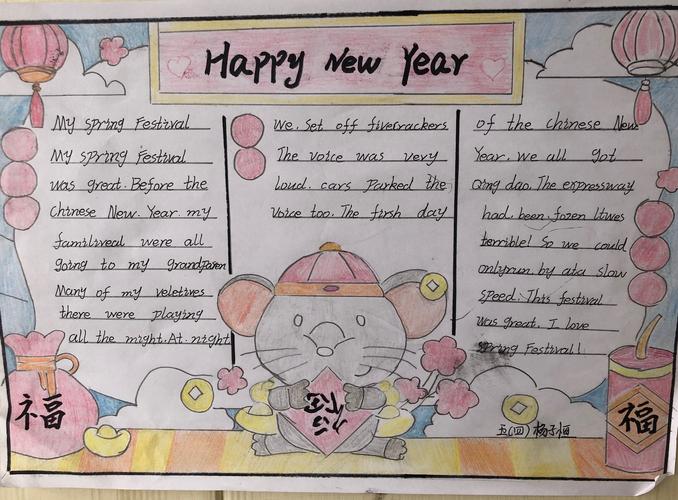 Happy New Year
My Spring Festival
My spring Festival
was great. Before the
Chinese New. Year. my
familiveal were all
going to my grandparen
Many of my veletives
there were playing
all the might. At. night
We. Set off fivecrackers
The voice was very
loud. cars parked the
voice too. The firsh day
of the Chinese New
Year. we all got
Qing dao. The expressway
had. been. fozen Itwes
terrible! So we could
onlyrun. by ata slow
speed. This festival
was great. I love
Spring Festival!
福
福
福
五(四) 杨子恒